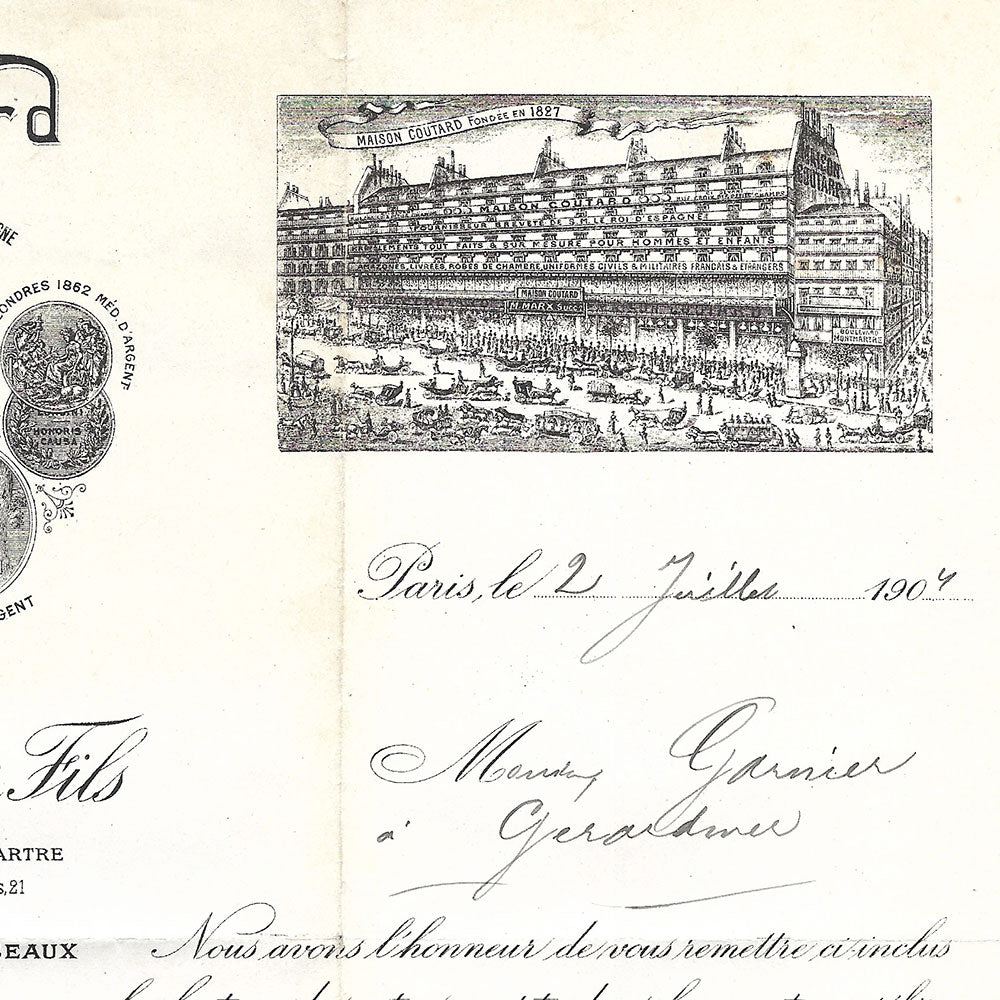 rd
GNE
LONDRES 1862 MÉD. D'ARGENT
HONORIS
CAUSA
GENT
MAISON COUTARD FONDÉE EN 1827
MAISON COUTARD
MAISON COUTARD RUE CROIX DES PETITS CHAMPS
FOURNISSEUR BREVETÉ DE S.M. LE ROI D'ESPAGNE
HABILLEMENTS TOUT FAITS & SUR MESURE POUR HOMMES ET ENFANTS
AMAZONES, LIVRÉES, ROBES DE CHAMBRE, UNIFORMES CIVILS & MILITAIRES FRANÇAIS & ETRANGERS
MAISON COUTARD
N. MARX SUCC.
BOULEVARD
MONTMARTRE
Paris, le 2 Juillet 1904
Fils
ARTRE
s, 21
BEAUX
Garnier
à Gerardmer
Nous avons l'honneur de vous remettre ci-inclus